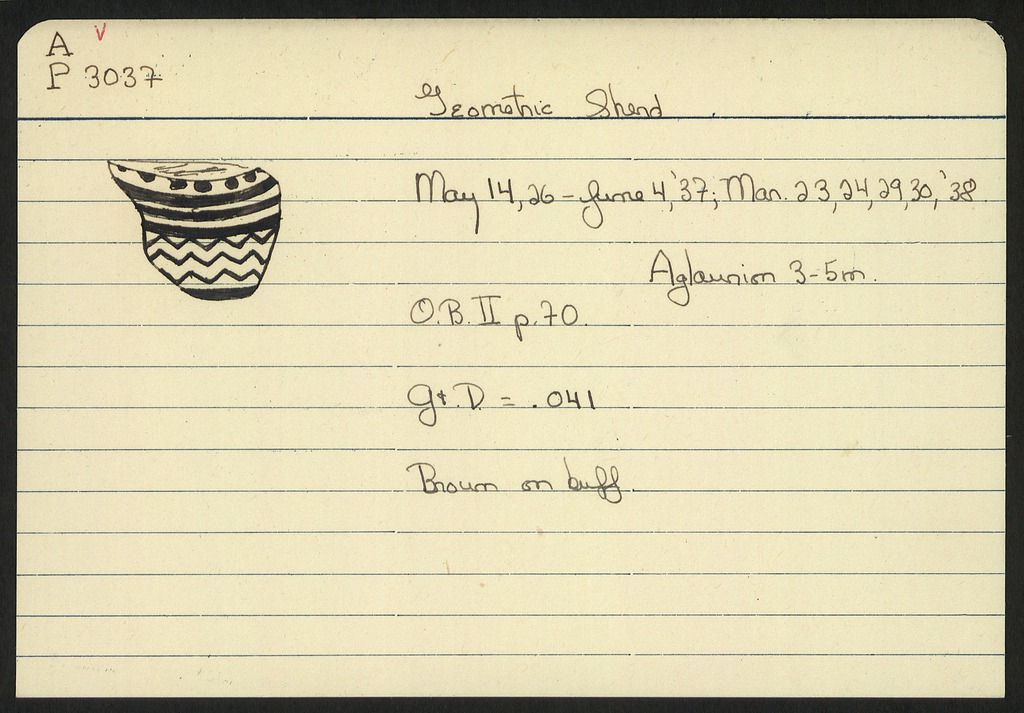 A v
P 3037
Geometric Sherd
May 14, 26 - June 4, '37; Mar. 23, 24, 29, 30, '38
Aglaurion 3-5m.
O.B. II p. 70.
Gt. D = .041
Brown on buff